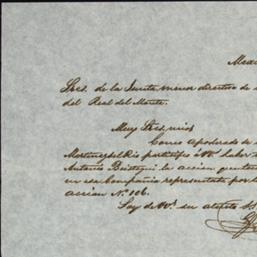 Mexi
Sres. de la Junta menor directiva de
del Real del Monte.
Muy Sres. mios
Como apoderado de
Martinez del Rio participo á VV. haber
Antonio Béistegui la accion que ten
en esa Compañia representada por
accion No. 106.
Soy de VV. su atento S. S.